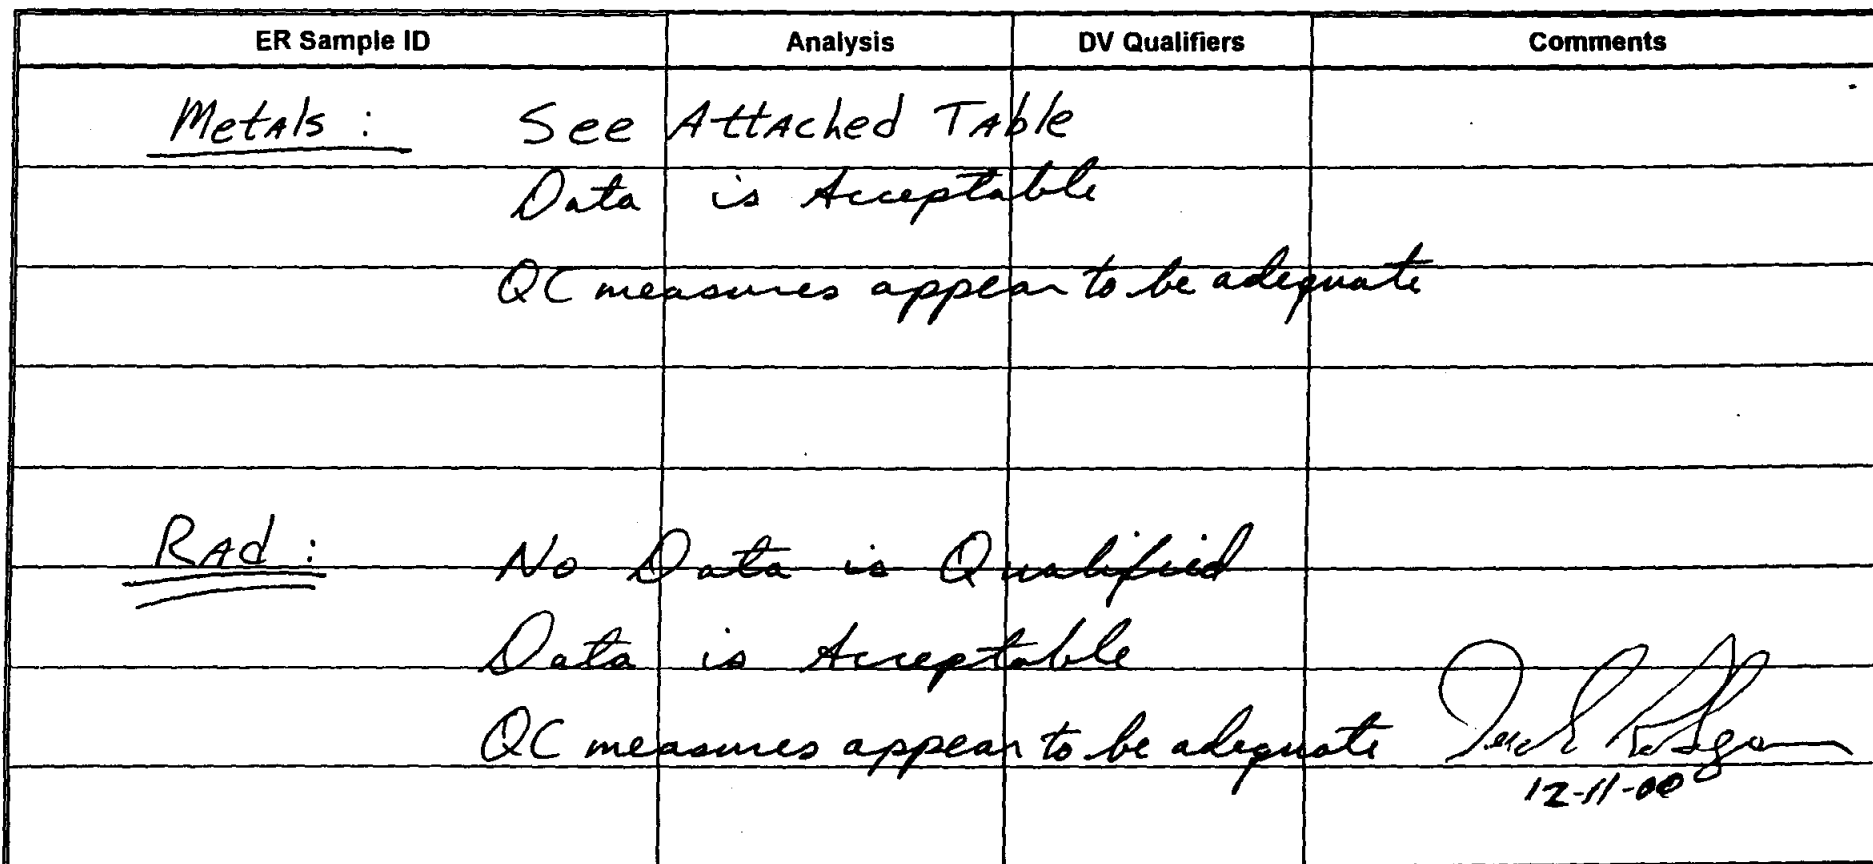 ER Sample ID Analysis DV Qualifiers Comments
Metals: See Attached Table
Data is Acceptable
QC measures appear to be adequate
Rad: No Data is Qualified
Data is Acceptable
QC measures appear to be adequate
12-11-00